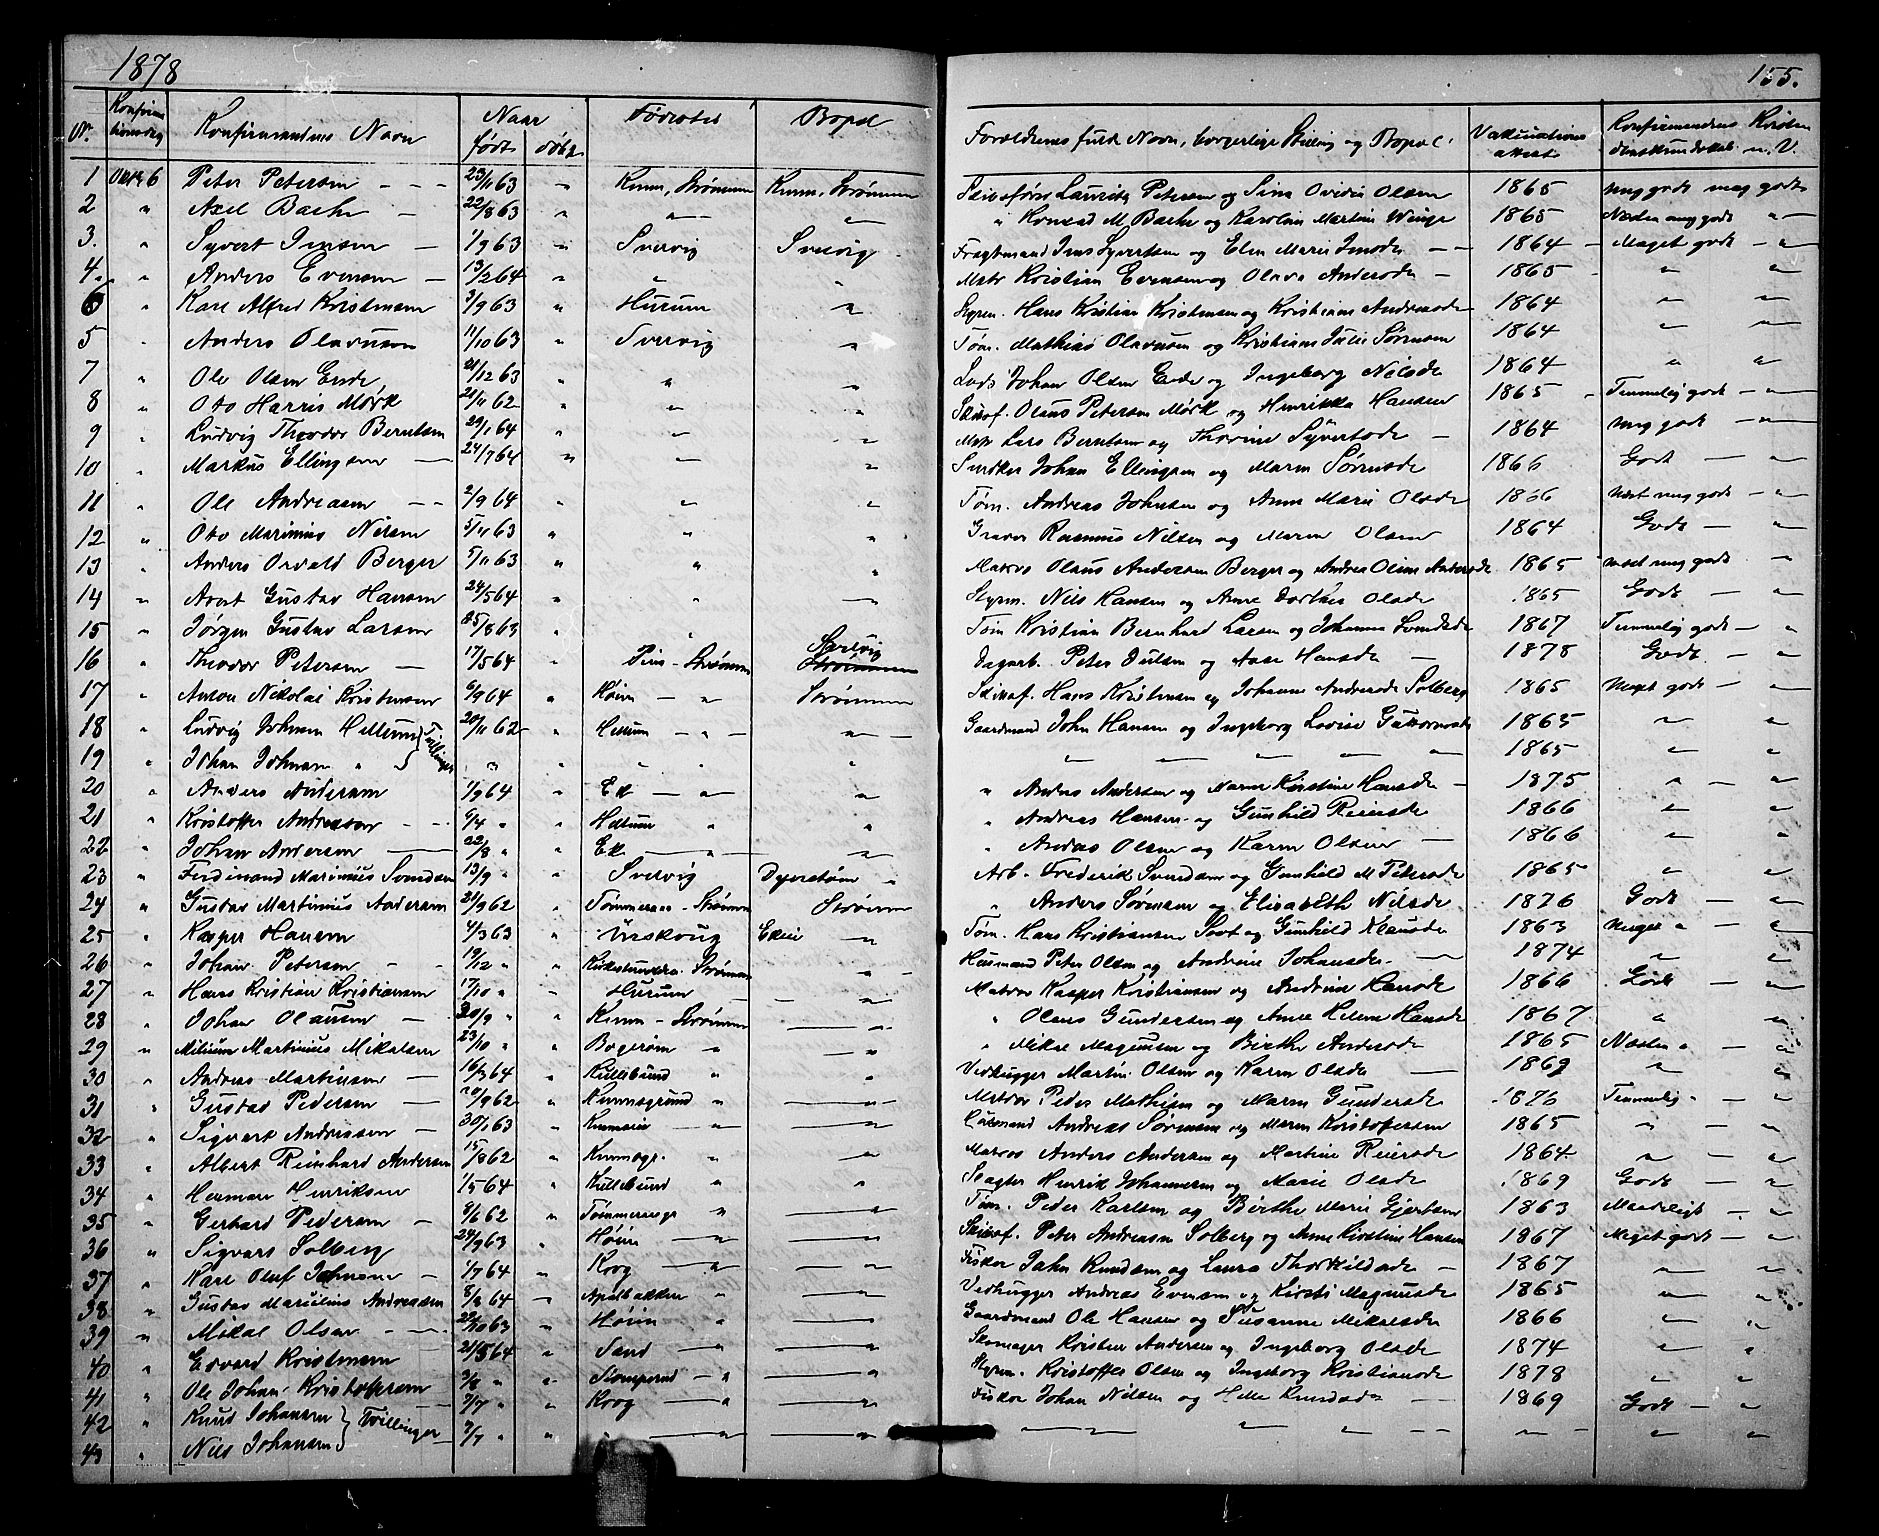 1878
155.
Nr. Konfirmationsdag Konfirmandens Navn Naar født døbt Fødested Bopæl Forældrenes fulde Navn, borgerlige Stilling og Bopæl. Vakcinations attest Konfirmandens Kristendomskundskab
1 Oktb 6 Peter Petersen 23/11 63 " Kinn, Strømmen Kinn, Strømmen Skibsfører Lauritz Petersen og Sina Ovidia Olsen 1865 meg godt meg godt
2 " Axel Bache 22/8 63 " " " " Konrad M. Bache og Karoline Martine Winge 1865 Næsten meg godt "
3. " Syvert Jensen 1/9 63 " Svelvig Svelvig Fragtemand Jens Syvertsen og Elen Marie Jensdr 1864 Meget godt "
4 " Anders Evensen 13/2 64 " " " Matr Kristian Evensen og Olava Andersdr 1865 " "
6 " Karl Alfred Kristensen 3/9 63 " Hurum " Styrm. Hans Kristian Kristensen og Kristiane Andersdr 1864 " "
5 " Anders Olavesen 11/10 63 " Svelvig " Tøm. Mathias Olavesen og Kristiane Julie Sørensen 1864 " "
7 " Ole Olsen Ende 21/12 63 " " " Lods Johan Olsen Ende og Ingeborg Nilsdr 1864 " "
8 " Oto Harris Mørk 21/11 62 " " " Skibsf. Olaus Petersen Mørk og Henrikka Hansen 1865 Temmelig godt "
9 " Ludvig Theodor Berntsen 29/1 64 " " " Matr Lars Berntsen og Thorine Syvertsdr 1864 meg godt "
10 " Markus Ellingsen 24/7 64 " " " Snedker Johan Ellingsen og Maren Sørensdr 1866 Godt "
11 " Ole Andreasen 2/9 64 " " " Tøm. Andreas Johnsen og Anne Marie Olsdr 1866 Næst meg godt "
12 " Oto Marinius Nilsen 5/11 63 " " " Graver Rasmus Nilsen og Maren Olsen 1864 Godt "
13 " Anders Osvald Berger 5/11 63 " " " Matros Olaus Andersen Berger og Andrea Oline Andersdr 1865 næst meg godt "
14 " Axel Gustav Hansen 24/5 64 " " " Styrm. Nils Hansen og Anne Dorthea Olsdr 1865 Godt "
15 " Jørgen Gustav Larsen 25/8 63 " " Tøm Kristian Bernhard Larsen og Johanne Svendsdr 1867 Temmelig godt "
16 " Theodor Petersen 17/5 64 " Strømmen Svelvig Dagarb. Peter og Aase Hansdr 1878 Godt "
17 " Anton Nikolai Kristensen 6/9 64 " Høien " Strømmen Skibsf. Hans Kristensen og Johanne Andersdr Solberg 1865 Meget godt "
18 " Ludvig Johnsen Hellum } Tvillinger 20/11 62 " Hellum " " Gaardmand John Hansen og Ingeborg Lovise Guttormsdr 1865 " "
19 " Johan Johnsen " " " " " " " 1865 " "
20 " Anders Andersen 1/9 64 " Ek " " " Anders Andersen og Maren Kirstine Hansdr 1875 " "
21 " Kristoffer Andreasen 6/4 " " Hellum " " " Andreas Hansen og Gunhild Reiersdr 1866 " "
22 " Johan Andersen 22/8 " " Ek " " " Anders Olsen og Karen Olsen 1866 " "
23 " Ferdinand Marinius Svendsen 13/9 " " Svelvig " Arb. Frederik Svendsen og Gunhild M Petersdr 1865 " "
24 " Gustav Martinius Andersen 21/9 62 " Strømmen Strømmen " Anders Sørensen og Elisabeth Nilsdr 1876 Godt "
25 " Kasper Hansen 4/3 63 " Urskoug " Tøm. Hans Kristiansen og Gunhild Klausdr 1863 Meget " "
26 " Johan Petersen 19/12 " " Strømmen " Husmand Peter Olsen og Andrine Johansdr 1874 " "
27 " Hans Kristian Kristiansen 17/10 " " Hurum " Matros Kasper Kristiansen og Andrine Hansdr 1866 Godt "
28 " Johan Olausen 20/9 " " Kinn - Strømmen " " Olaus Gundersen og Anne Helene Hansdr 1867 " "
29 " Milium Martinius Mikalsen 23/10 " " Bogerøen " " Mikal Magnusen og Birthe Andersdr 1865 Næsten " "
30 " Andreas Martinsen 16/3 64 " Kullebund " " Vedhugger Martin Olsen og Karen Olsdr 1869 " "
31 " Gustav Pedersen 20/9 62 " " " Matros Peder Mathisen og Maren Gundersdr 1876 Temmelig " "
32 " Sigvart Andreasen 30/1 63 " " " Andreas Sørensen og Maren Kristofersen 1865 " "
33 " Albert Reinhard Andersen 15/8 62 " " " Matros Anders Andersen og Martine Reiersdr 1864 " "
34 " Herman Henriksen 1/5 64 " Kullebund " " Slagter Henrik Johannesen og Marie Olsdr 1869 Godt "
35 " Gerhard Pedersen 8/6 62 " " " Tøm. Peder Karlsen og Birthe Marie Gjertsen 1863 Maadeligt "
36 " Sigvart Solberg 24/9 63 " Høien " " Skibsf. Peter Andreasen Solberg og Anne Kirstine Hansen 1867 Meget godt "
37 " Karl Oluf Johnsen 1/7 64 " Krog " " Fisker John Knudsen og Laura Thorkildsdr 1867 " "
38 " Gustav Marelius Andreasen 8/8 64 " Apalbakken " " Vedhugger Andreas Evensen og Kirsti Magnusdr 1865 " "
39 " Mikal Olsen 22/10 63 " Høien " " Gaardmand Ole Hansen og Susanne Mikalsdr 1866 " "
40 " Edvard Kristensen 21/5 64 " Sand " " Skomager Kristen Andersen og Ingeborg Olsdr 1874 " "
41 " Ole Johan Kristoffersen 3/8 " " " " Styrm. Kristoffer Olsen og Ingeborg Kristiansdr 1878 " "
42 " Knud Johansen } Tvillinger 7/7 " " Krog " " Fisker Johan Nilsen og Helle Knudsdr 1869 Godt "
43 " Nils Johansen 7/7 " " " " " " " "